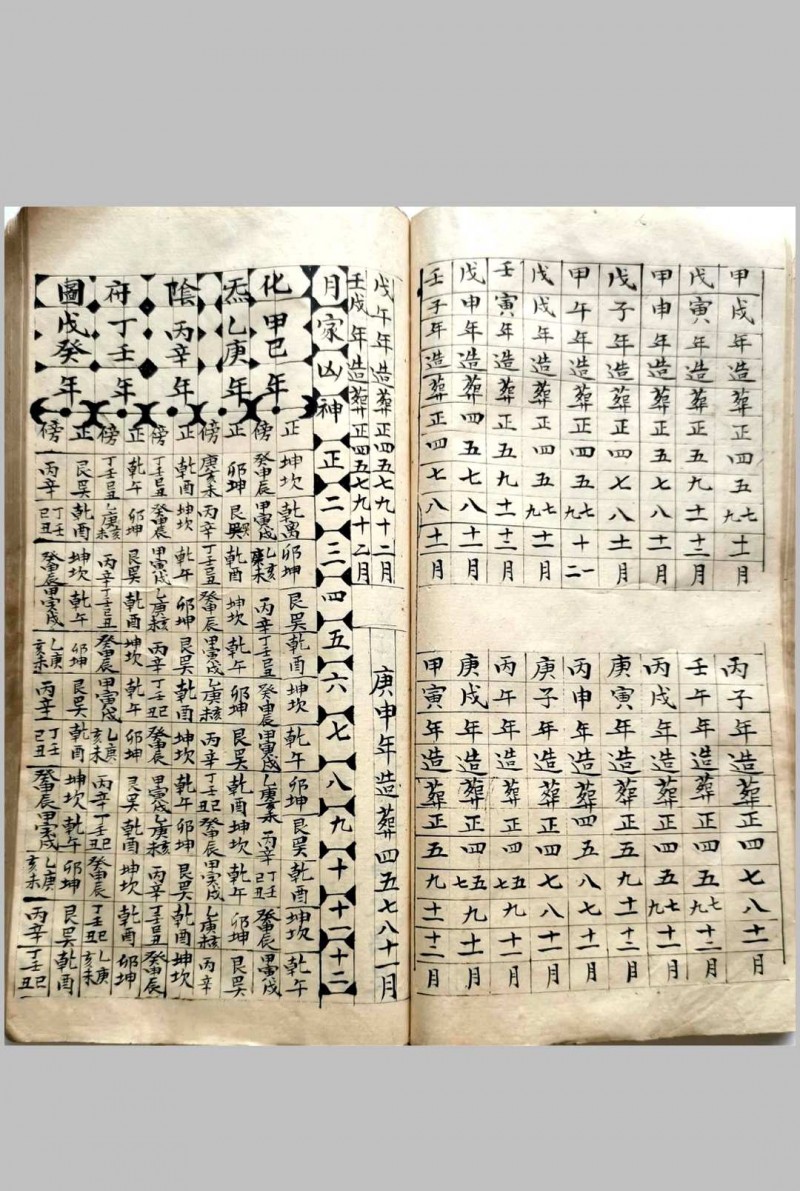 甲戌年造葬正四五七九十一月
戊寅年造葬正五九十一十二月
甲申年造葬正五七八十二月
戊子年造葬正四七八十一月
甲午年造葬正四五七九十一二
戊戌年造葬正四五七九十一月
壬寅年造葬正五九十一十二月
戊申年造葬四五七八十二月
壬子年造葬正四七八十二月
丙子年造葬正四七八十一月
壬午年造葬正四五七九十二月
丙戌年造葬正四五七九十一月
庚寅年造葬正五九十一十二月
丙申年造葬四五八七十一月
庚子年造葬正四七八十一月
丙午年造葬正四五七九十二月
庚戌年造葬正四五七九十一月
甲寅年造葬正五九十一十二月
戊午年造葬正四五七九十二月
壬戌年造葬正四五七九十二月
庚申年造葬四五七八十一月
月家凶神正二三四五六七八九十十一十二
化甲己年
正坤坎乾离卯坤艮巽乾酉坤坎乾午卯坤艮巽乾酉坤坎乾午
傍癸申辰甲寅戌乙庚亥未丙辛丁壬巳丑癸申辰甲寅戌乙庚亥未丙辛丁壬巳丑癸申辰甲寅戌
炁乙庚年
正卯坤艮巽乾酉坤坎乾午卯坤艮巽乾酉坤坎乾午卯坤艮巽
傍庚亥未丙辛丁壬巳丑癸申辰甲寅戌乙庚亥未丙辛丁壬巳丑癸申辰甲寅戌乙庚亥未丙辛
陰丙辛年
正乾酉坤坎乾午卯坤艮巽乾酉坤坎乾午卯坤艮巽乾酉坤坎
傍丁壬巳丑癸申辰甲寅戌乙庚亥未丙辛丁壬巳丑癸申辰甲寅戌乙庚亥未丙辛丁壬巳丑癸申辰
府丁壬年
正乾午卯坤艮巽乾酉坤坎乾午卯坤艮巽乾酉坤坎乾酉卯坤
圖戊癸年
正艮巽乾酉坤坎乾午卯坤艮巽乾酉坤坎乾午卯坤艮巽乾酉
傍丙辛丁壬巳丑癸申辰甲寅戌乙庚亥未丙辛丁壬巳丑癸申辰甲寅戌乙庚亥未丙辛丁壬巳丑